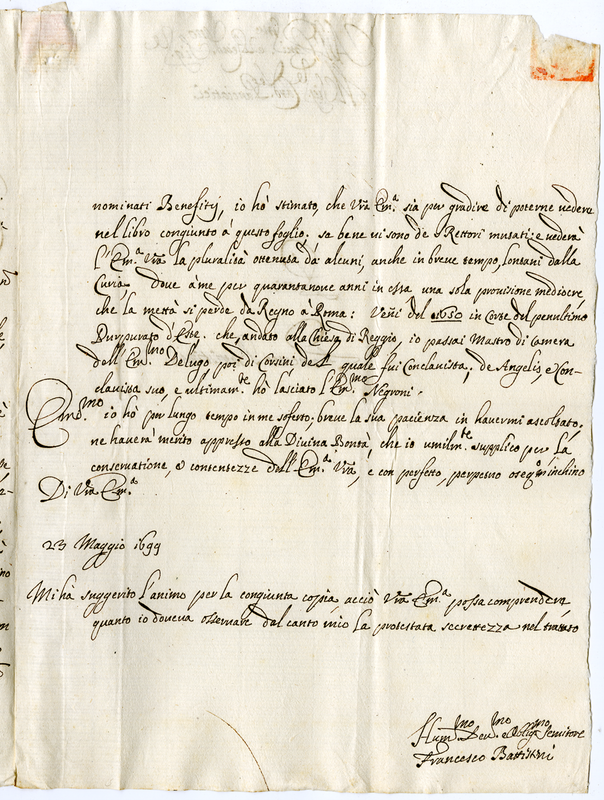 nominati Benefitij, io hò stimato, che Vrã Em.ª sia per gradire di poterne vedere
nel libro congiunto à questo foglio. sa bene vi sono de Rettori mutati; e vederà
l'Em.ª Vrã la pluralità ottenuta dà alcuni, anche in breve tempo, lontani dalla
Curia, dove à me per quarantanove anni in essa una sola provisione mediocre,
che la mettà si perde da Regno à Roma: Venni del 1650 in Corte del penultimo
Purpurato d'Este. che, andato alla Chiesa di Reggio, io passai Mastro di Camera
dell'Em.mo Delugo poi di Corsini del quale fui Conclavista, de Angelis, e Con-
clavista suo, e ultimam.te hò lasciato l'Em.mo Negroni.
Em.mo io hò per lungo tempo in me soferto. breve la sua pacienza in havermi ascoltato,
ne haverà merito appresso alla Divina Bontà, che io umilm.te supplico per la
conservatione, e contentezze dell'Em.ª Vrã, e con perfetto, perpetuo oseq.o m'inchino
Di Vrã Em.ª
23 Maggio 1699
Mi hà suggerito l'animo per la congiunta copia, acciò Vrã Em.ª possa comprendere,
quanto io doveva osservare dal canto mio la protestata secretezza nel trattato
Hum.mo Dev.mo e Oblig.mo Servitore
Francesco Battistini